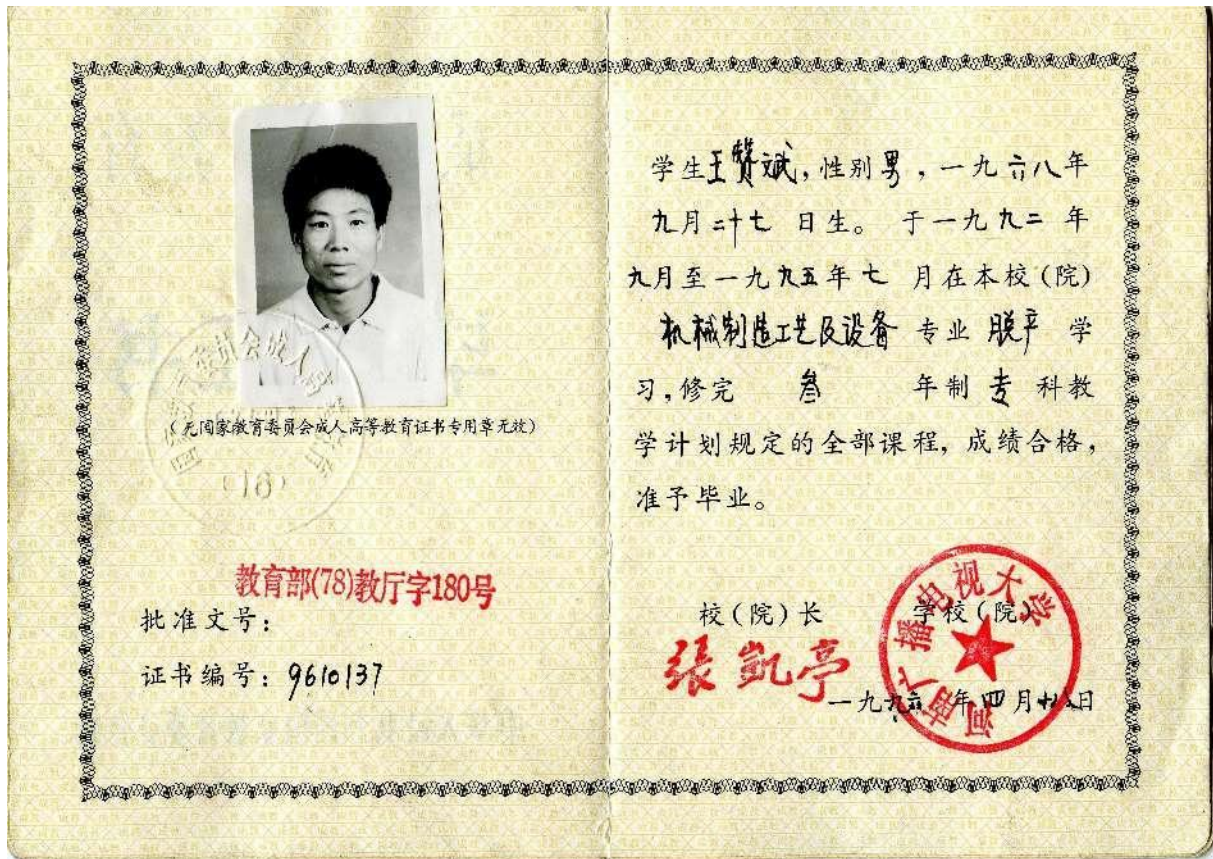 (无国家教育委员会成人高等教育证书专用章无效)
(16)
教育部(78)教厅字180号
批准文号:
证书编号: 9610137
学生王赞斌,性别男,一九六八年
九月二十七日生。于一九九二年
九月至一九九五年七月在本校(院)
机械制造工艺及设备专业脱产学
习,修完叁年制专科教
学计划规定的全部课程,成绩合格,
准予毕业。
校(院)长
学校(院)
张凯亭
河南广播电视大学
一九九六年四月十八日